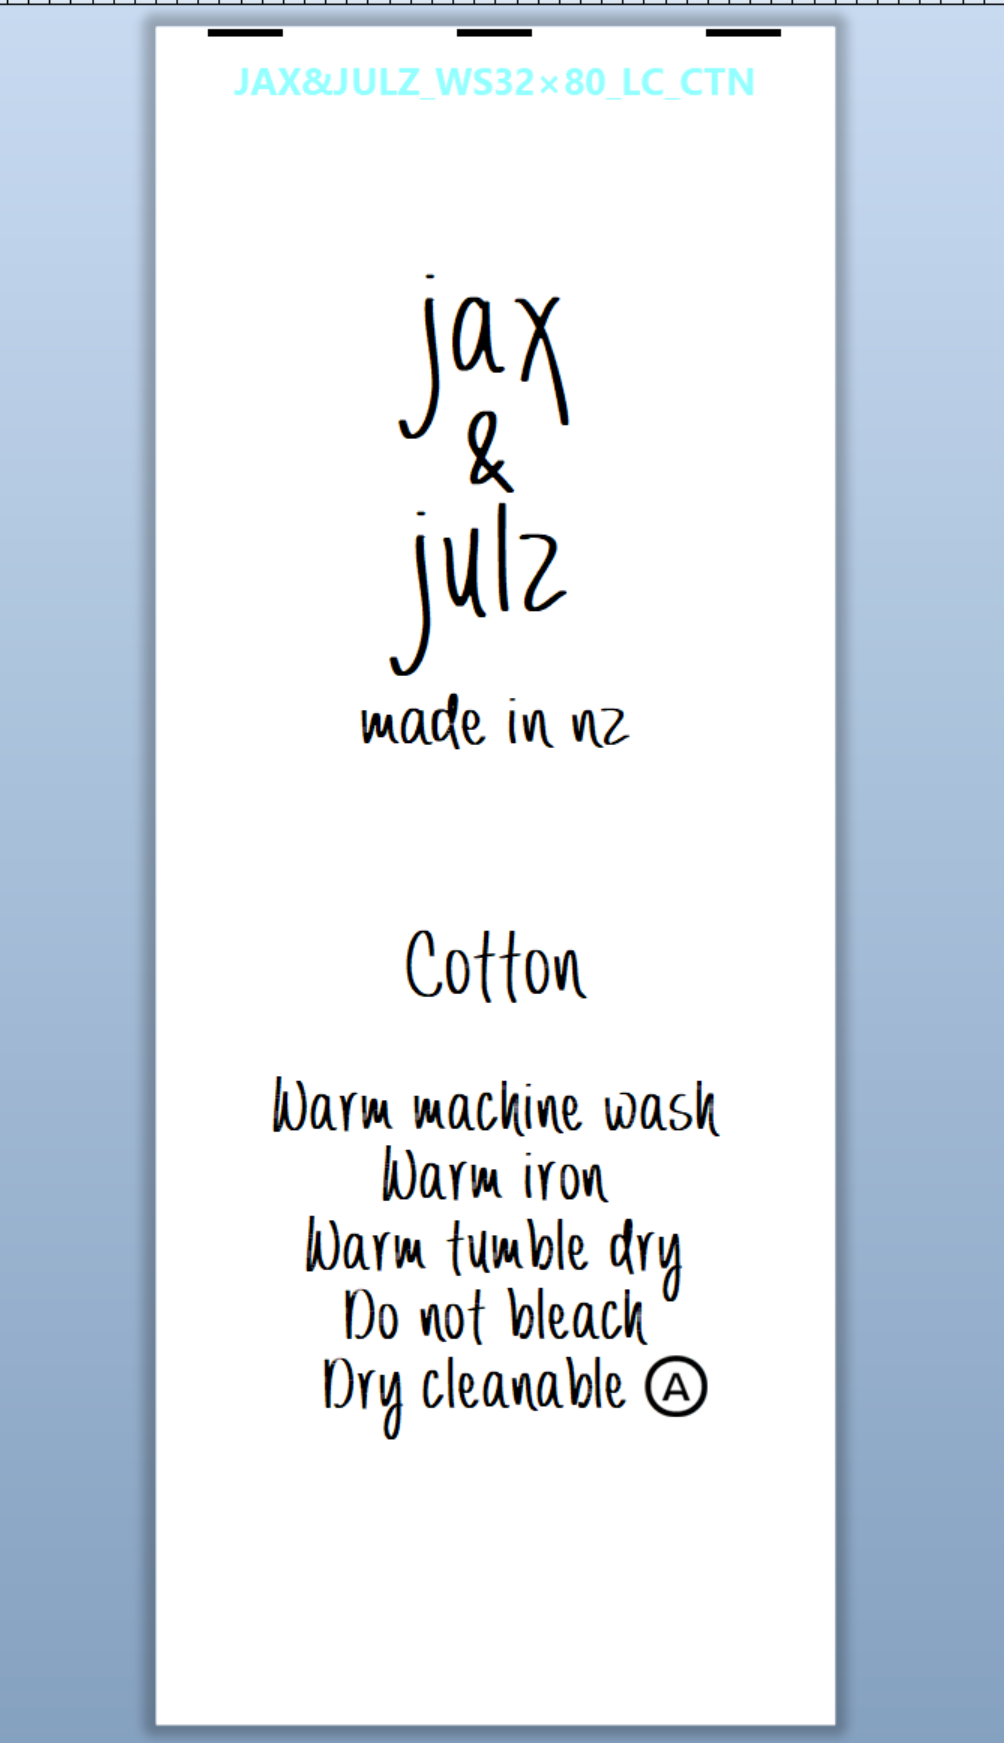 JAX&JULZ_WS32×80_LC_CTN
jax
&
julz
made in nz
Cotton
Warm machine wash
Warm iron
Warm tumble dry
Do not bleach
Dry cleanable Ⓐ